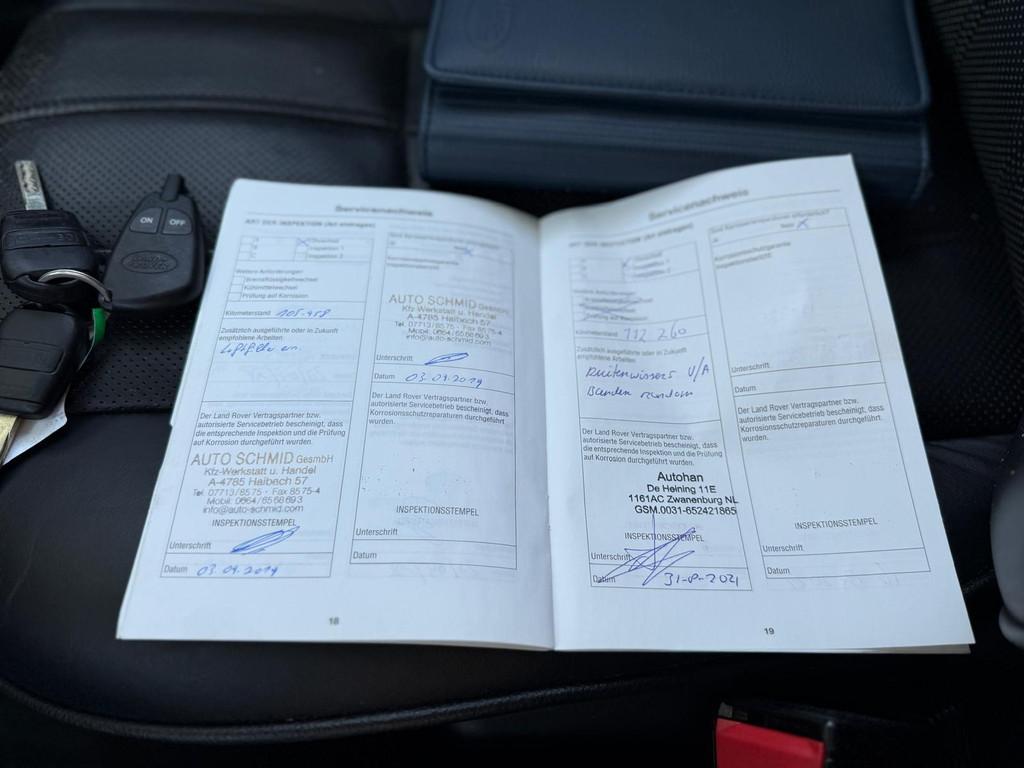 ON OFF
LAND ROVER
Servicenachweis
ART DER INSPEKTION (Art eintragen)
A
B
C
Ölwechsel
Inspektion 1
Inspektion 2
Weitere Anforderungen
Bremsflüssigkeitwechsel
Kühlmittelwechsel
Prüfung auf Korrosion
Kilometerstand 105.458
Zusätzlich ausgeführte oder in Zukunft
empfohlene Arbeiten
Der Land Rover Vertragspartner bzw.
autorisierte Servicebetrieb bescheinigt, dass
die entsprechende Inspektion und die Prüfung
auf Korrosion durchgeführt wurden.
AUTO SCHMID GesmbH
Kfz-Werkstatt u. Handel
A-4785 Haibach 57
Tel. 07713/8575 · Fax 8575-4
Mobil: 0664/6568693
info@auto-schmid.com
INSPEKTIONSSTEMPEL
Unterschrift
Datum 03.09.2019
Korrosionsschutzgarantie
AUTO SCHMID GesmbH
Kfz-Werkstatt u. Handel
A-4785 Haibach 57
Tel. 07713/8575 · Fax 8575-4
Mobil: 0664/6568693
info@auto-schmid.com
Unterschrift
Datum 03.09.2019
Der Land Rover Vertragspartner bzw.
autorisierte Servicebetrieb bescheinigt, dass
Korrosionsschutzreparaturen durchgeführt
wurden.
INSPEKTIONSSTEMPEL
Unterschrift
Datum
18
Servicenachweis
ART DER INSPEKTION (Art eintragen)
Kilometerstand 112 260
Zusätzlich ausgeführte oder in Zukunft
empfohlene Arbeiten
Ruitenwissers V/A
Banden rondom
Der Land Rover Vertragspartner bzw.
autorisierte Servicebetrieb bescheinigt, dass
die entsprechende Inspektion und die Prüfung
auf Korrosion durchgeführt wurden.
Autohan
De Heining 11E
1161AC Zwanenburg NL
GSM.0031-652421865
INSPEKTIONSSTEMPEL
Unterschrift
Datum 31-8-2021
Nein X
Korrosionsschutzgarantie
Unterschrift
Datum
Der Land Rover Vertragspartner bzw.
autorisierte Servicebetrieb bescheinigt, dass
Korrosionsschutzreparaturen durchgeführt
wurden.
INSPEKTIONSSTEMPEL
Unterschrift
Datum
19